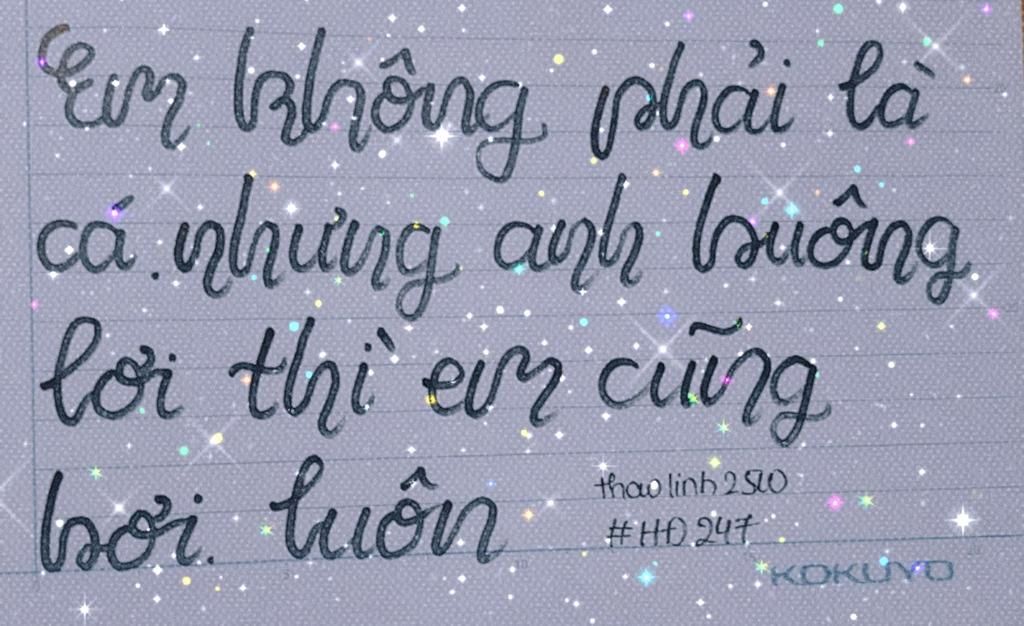 Em không phải là
cá. nhưng anh buông
lơi thì em cũng
bơi. luôn
thaolinh2510
#HĐ247
KOKUYO